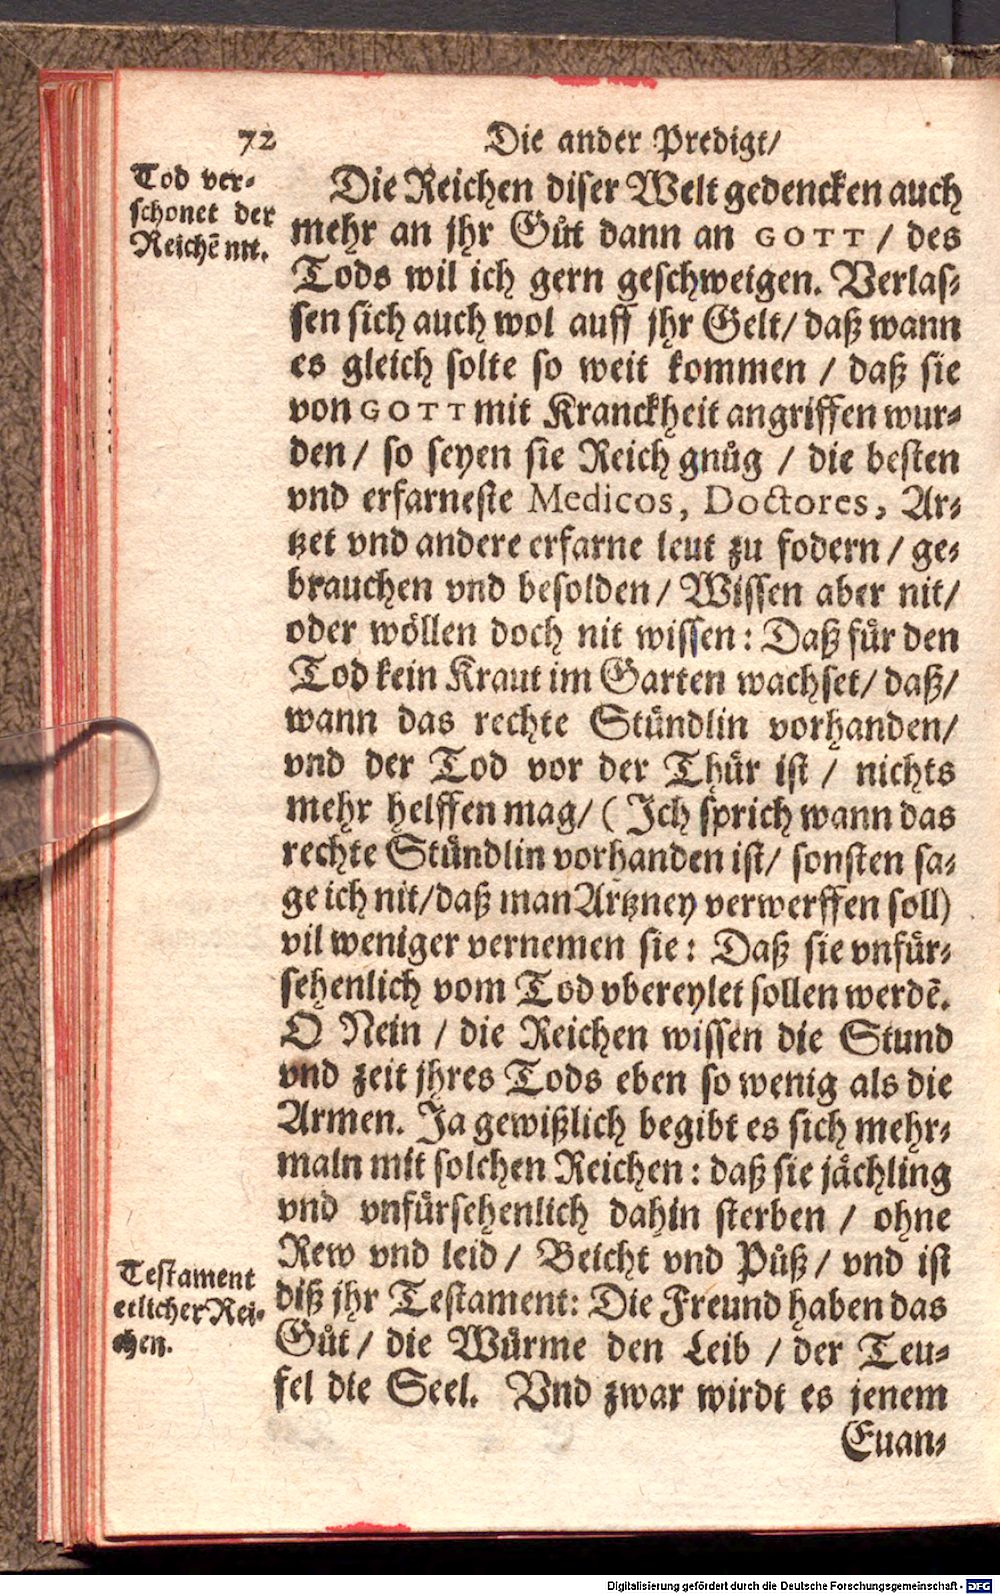 72 Die ander Predigt/
Tod ver-
schonet der
Reichẽ nit.
Die Reichen diser Welt gedencken auch
mehr an jhr Gůtt dann an GOTT / des
Tods wil ich gern geschweigen. Verlas-
sen sich auch wol auff jhr Gelt/ daß wann
es gleich solte so weit kommen / daß sie
von GOTT mit Kranckheit angriffen wur-
den / so seyen sie Reich gnůg / die besten
vnd erfarneste Medicos, Doctores, Ar-
tzet vnd andere erfarne leut zu fodern / ge-
brauchen vnd besolden / Wissen aber nit/
oder wöllen doch nit wissen: Daß für den
Tod kein Kraut im Garten wachset/ daß/
wann das rechte Stündlin vorhanden/
vnd der Tod vor der Thür ist / nichts
mehr helffen mag/ (Ich sprich wann das
rechte Stündlin vorhanden ist/ sonsten sa-
ge ich nit/ daß man Artzney verwerffen soll)
vil weniger vernemen sie: Daß sie vnfür-
sehenlich vom Tod vbereylet sollen werdẽ.
O Nein / die Reichen wissen die Stund
vnd zeit jhres Tods eben so wenig als die
Armen. Ja gewißlich begibt es sich mehr-
maln mit solchen Reichen: daß sie jächling
vnd vnfürsehenlich dahin sterben / ohne
Rew vnd leid / Beicht vnd Půß/ vnd ist
diß jhr Testament: Die Freund haben das
Gůt / die Würme den Leib / der Teu-
fel die Seel. Vnd zwar wirdt es jenem
Testament
etlicher Rei-
chen.
Euan-
Digitalisierung gefördert durch die Deutsche Forschungsgemeinschaft - DFG